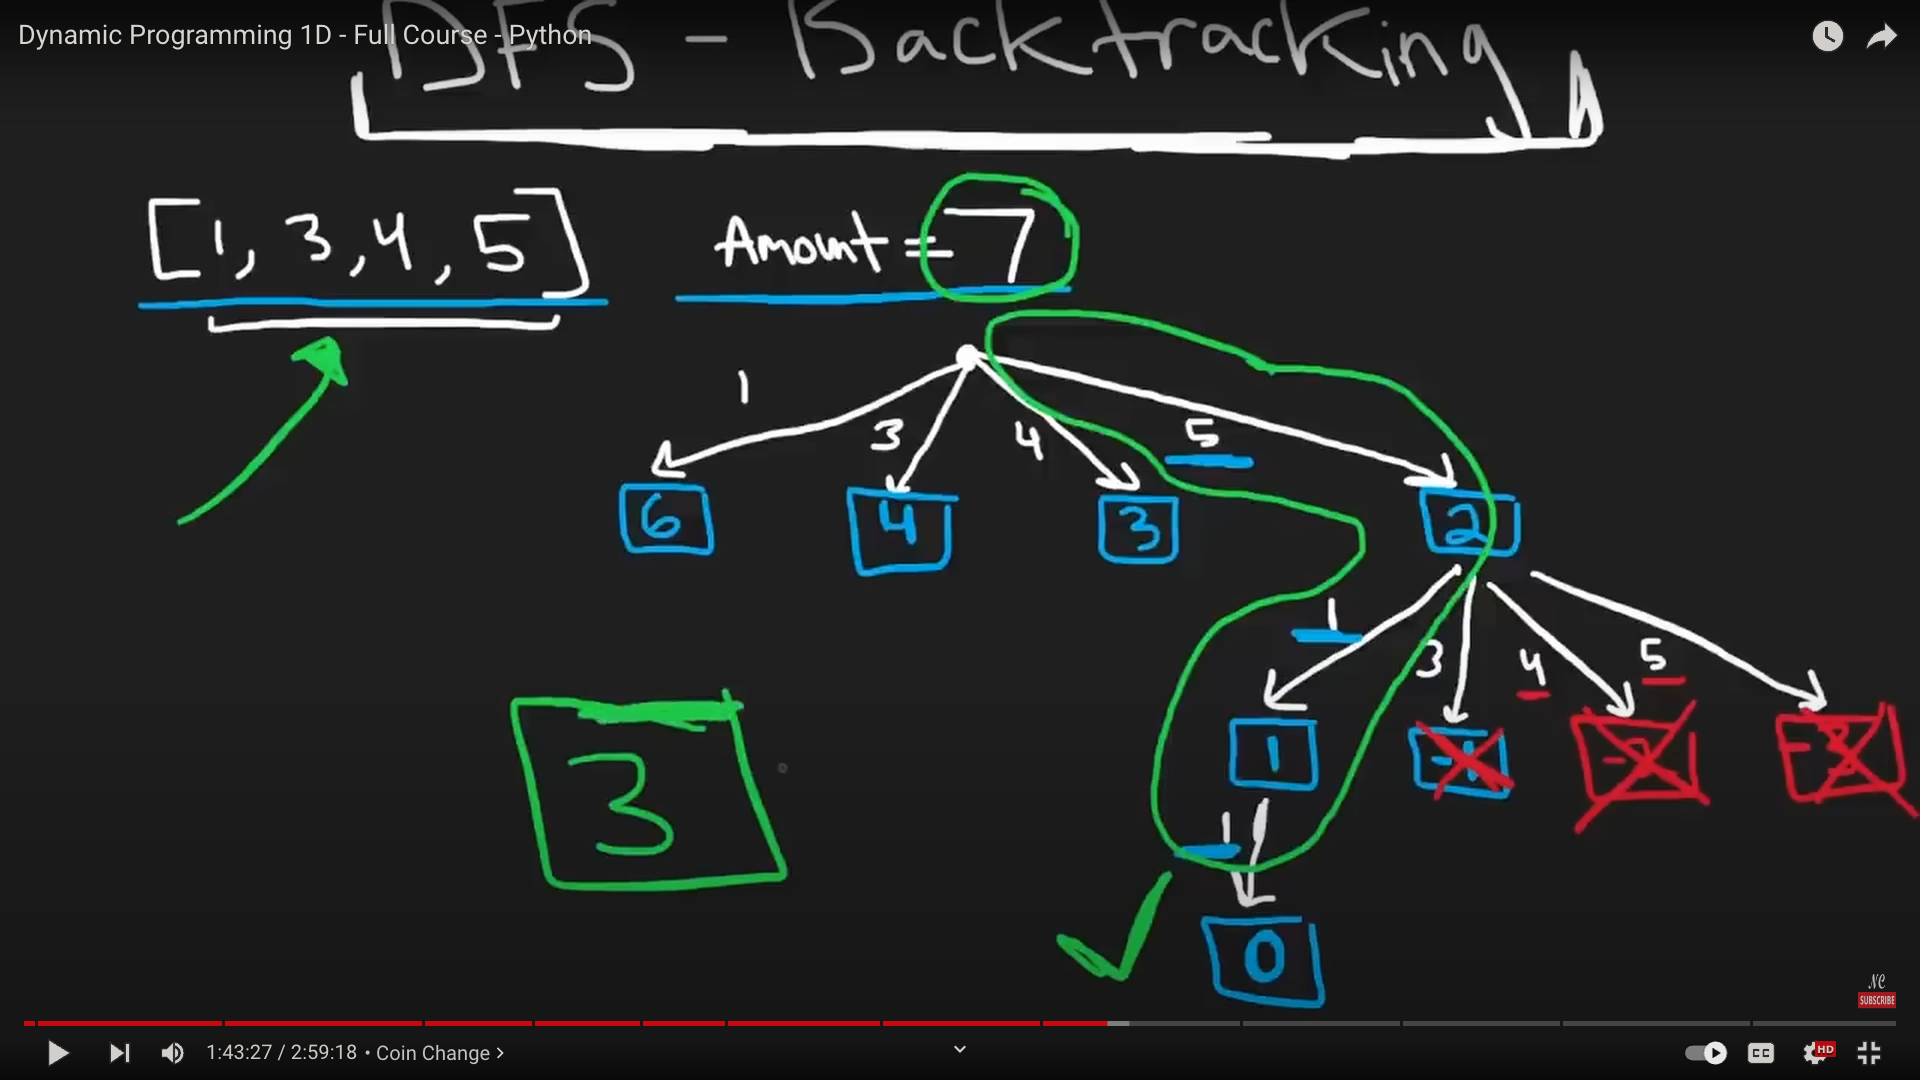 Dynamic Programming 1D - Full Course - Python
DFS - Backtracking
[1, 3, 4, 5] Amount = 7
1
3 4 5
6 4 3 2
1
3 4 5
1 -1 -2 -3
3
1
0
NC
SUBSCRIBE
1:43:27 / 2:59:18 • Coin Change >
CC
HD